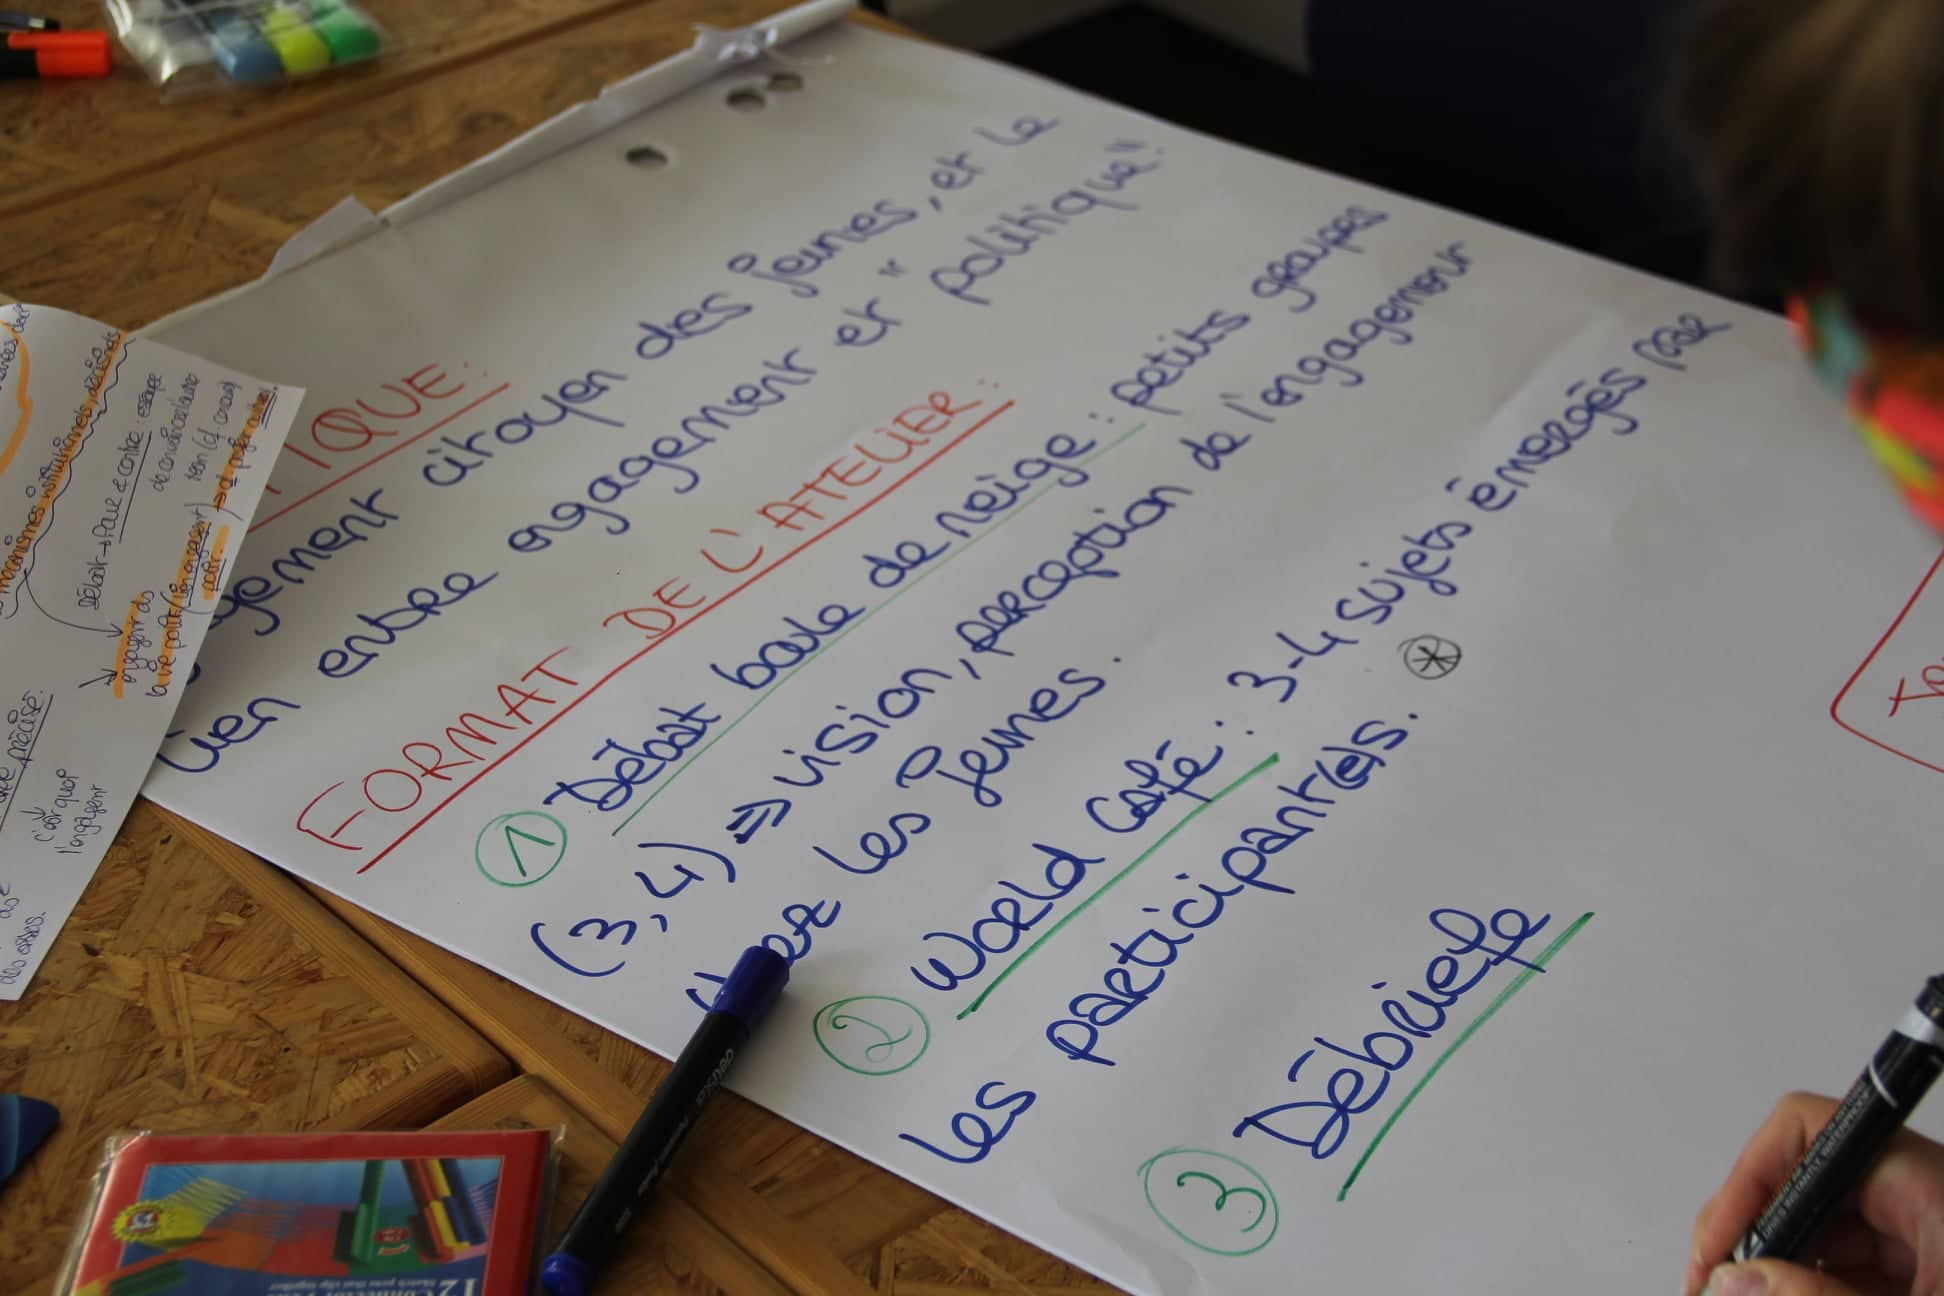 TIQUE:
gement citoyen des jeunes, et le
lien entre engagement et "politique".
FORMAT DE L'ATELIER:
1 Débat boule de neige : petits groupes
(3,4) => vision, perception de l'engagement
chez les jeunes.
2 World Café : 3-4 sujets émergés par
les participant(e)s. *
3 Débriefe
mécanismes institutionnels
Débat → Pour & contre : essaye
de convaincre l'autre
→ engagent ds
la vie polit
précise.
↓
c'est quoi
l'engagent
des autres.
12